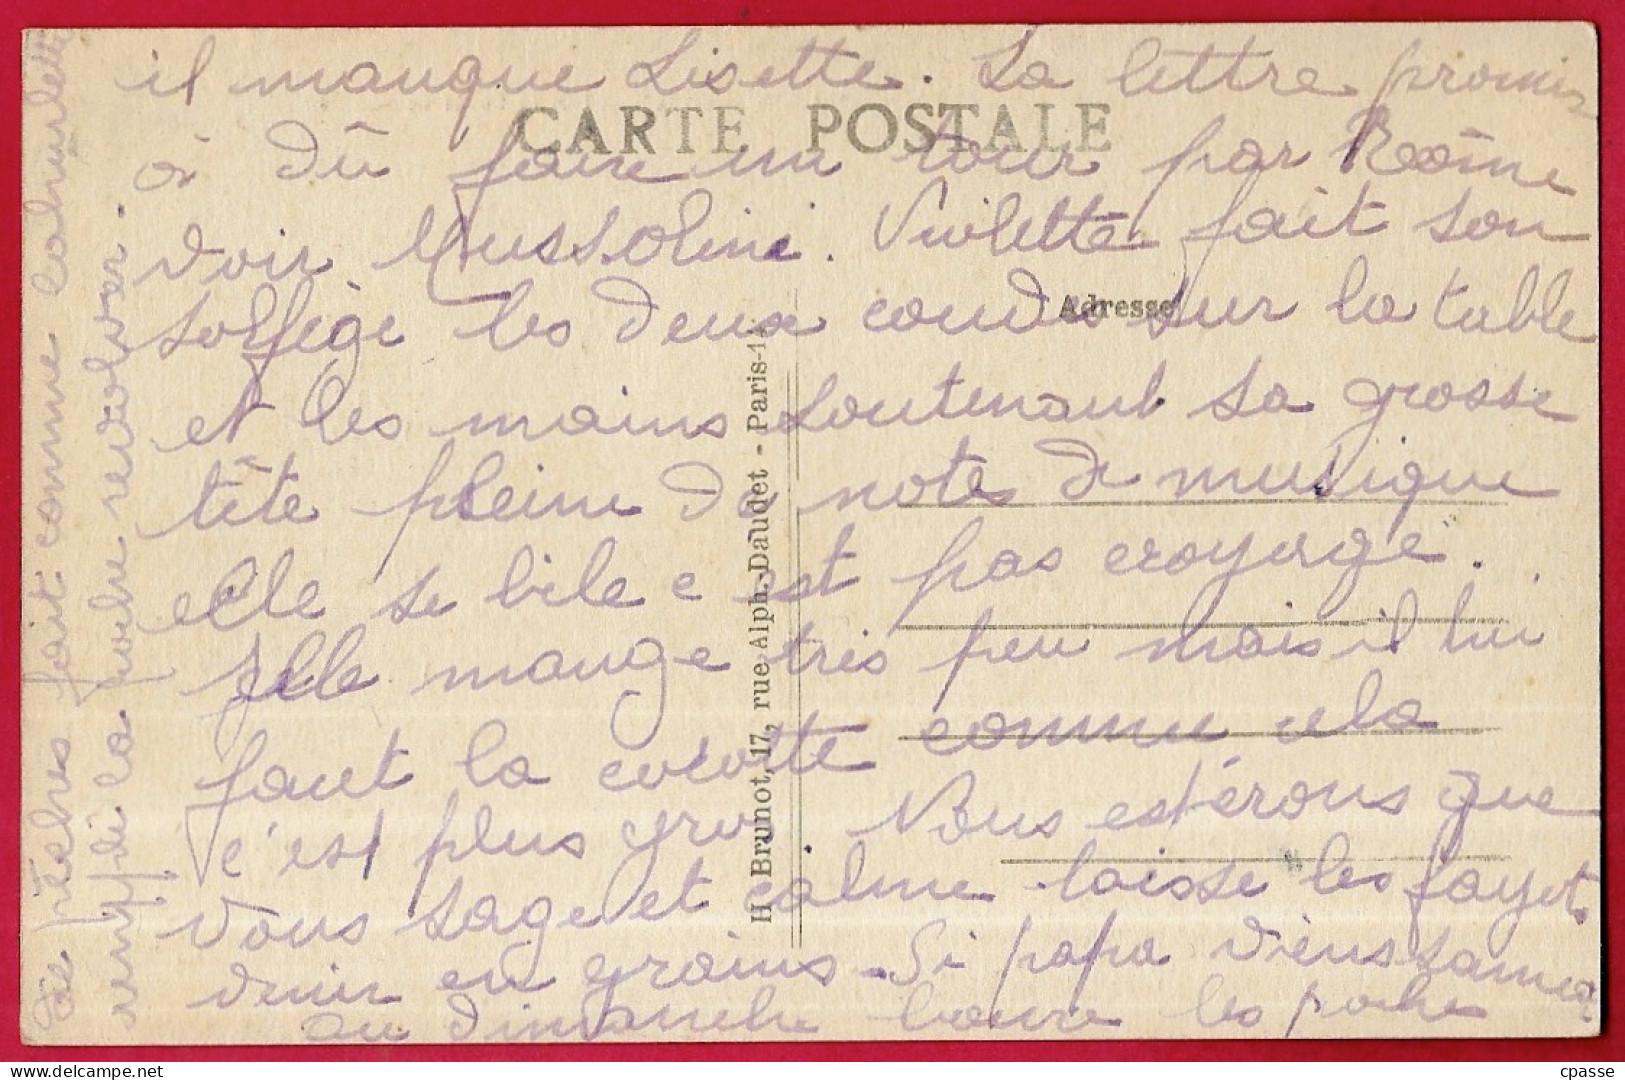 il manque Lisette. La lettre promis
CARTE POSTALE
à dû faire un tour par Rome
voir Mussolini. Violette fait son
Adresse
solfège les deux coudes sur la table
et les mains soutenant sa grosse
tête pleine de notes de musique
elle se bile c est pas croyage.
Elle mange très peu mais il lui
faut la cocotte comme cela
c'est plus gros. Nous espérons que
vous sage et calme laisse les fayet
venir en grains. Si papa viens samedi
ou dimanche bourre les poches
de pèches fait comme
rempli la poudre revolver.
H. Brunot, 17, rue Alph. Daudet - Paris-14